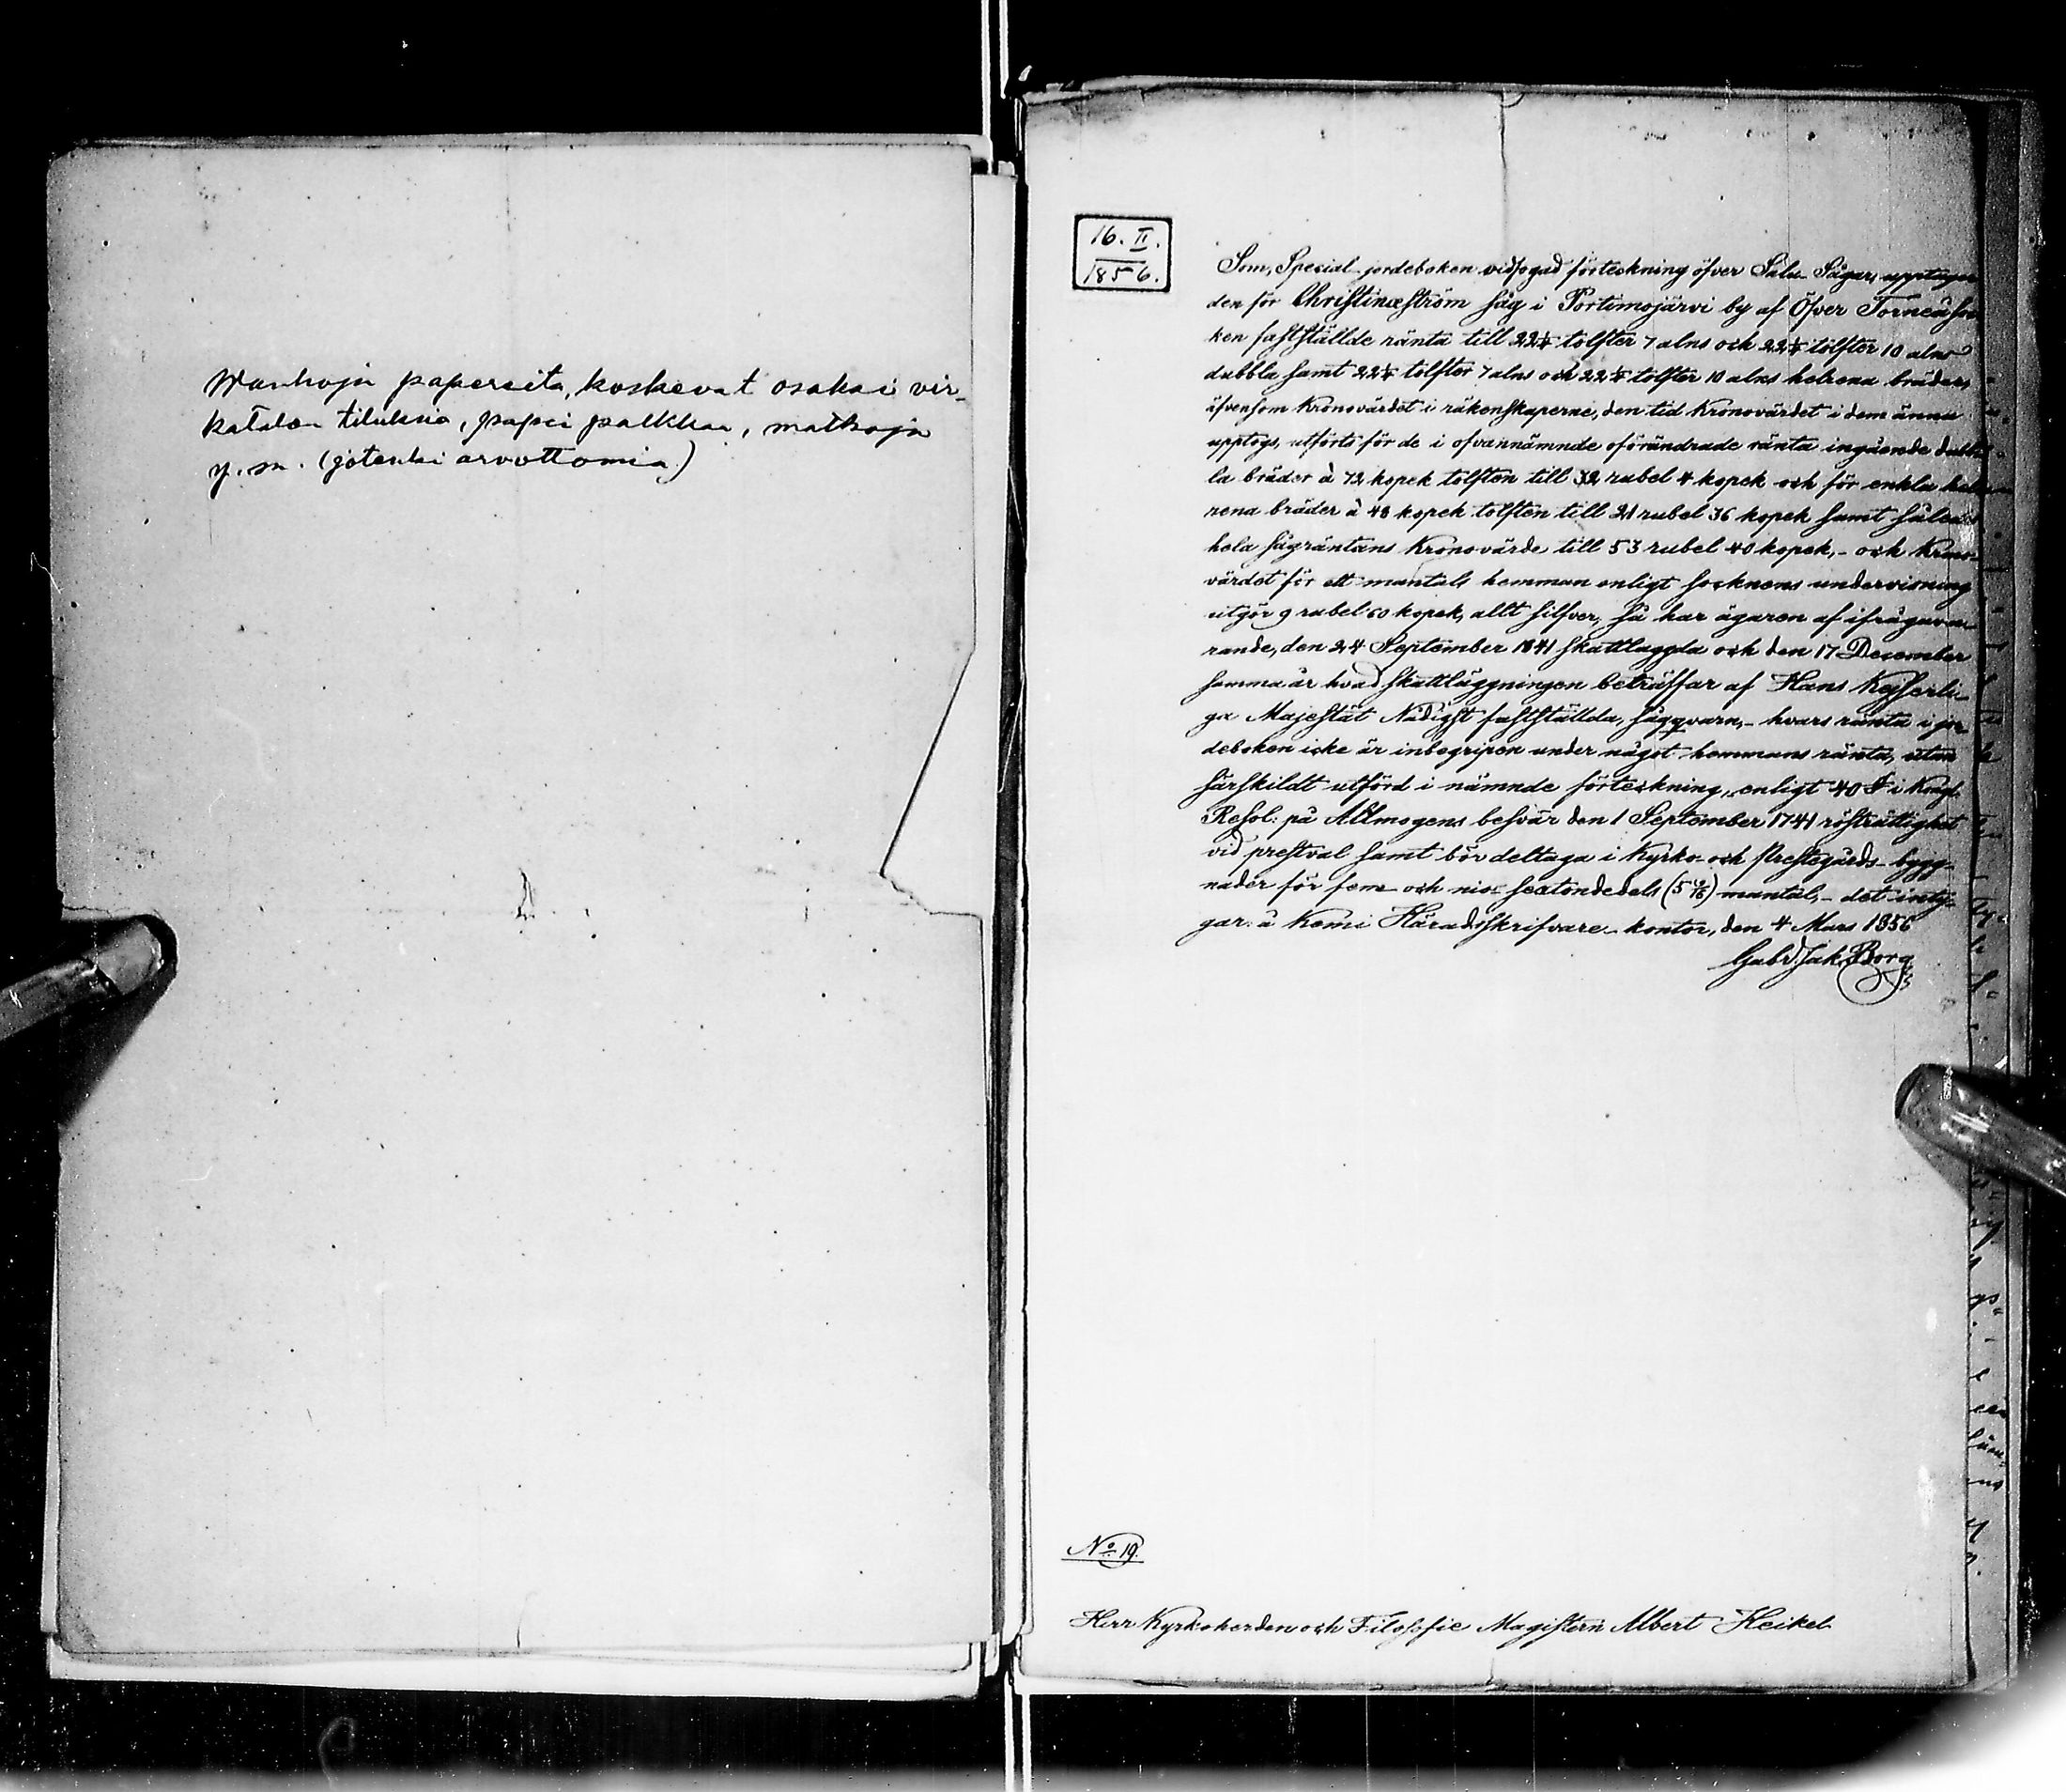 Wanhoja papereita, koskevat osaksi vir-
katalon tiluksia, papei palkkaa, matkoja
y. m. (jotenki arvottomia)
16. II.
1856.
Som, Special-jordeboken vidfogad förteckning öfver Salu-Sågar, upptager
den för Christinæström såg i Portimojärvi by af Öfver Torneå soc
ken fastställde ränta till 22¼ tolfter 7 alns och 22¼ tolfter 10 alns
dubbla samt 22¼ tolfter 7 alns och 22¼ tolfter 10 alns helrena bräder,
äfvensom Kronovärdet i räkenskaperne, den tid Kronovärdet i dem ännu
upptogs, utförts för de i ofvannämnde oförändrade ränta ingående dubb
la bräder à 72 kopek tolften till 32 rubel 4 kopek och för enkla hel
rena bräder à 48 kopek tolften till 21 rubel 36 kopek samt således
hela sågräntans Kronovärde till 53 rubel 40 kopek, - och Krono-
värdet för ett mantals hemman enligt socknens undervisning
utgör 9 rubel 60 kopek, allt silfver, så har ägaren af ifrågava-
rande, den 24 September 1841 skattlaggda och den 17 December
samma år hvad skattläggningen beträffar af Hans Kejserli-
ga Majestät Nådigst fastställda, sågqvarn, - hvars ränta i jor-
deboken icke är inbegripen under något hemmans ränta, utan
särskildt utförd i nämnde förteckning, enligt 40 § i Kongl.
Resol: på Allmogens besvär den 1 September 1741 rösträttighet
vid prestval samt bör deltaga i Kyrko- och Prestegårds-bygg-
nader för fem och nio sextondedels (5 9/16) mantal, - det inty-
gar. å Kemi Häradsskrifvare-kontor, den 4 Mars 1856
Gabr. Jak. Borg
No 19.
Herr Kyrkoherden och Filosofie Magistern Albert Heikel